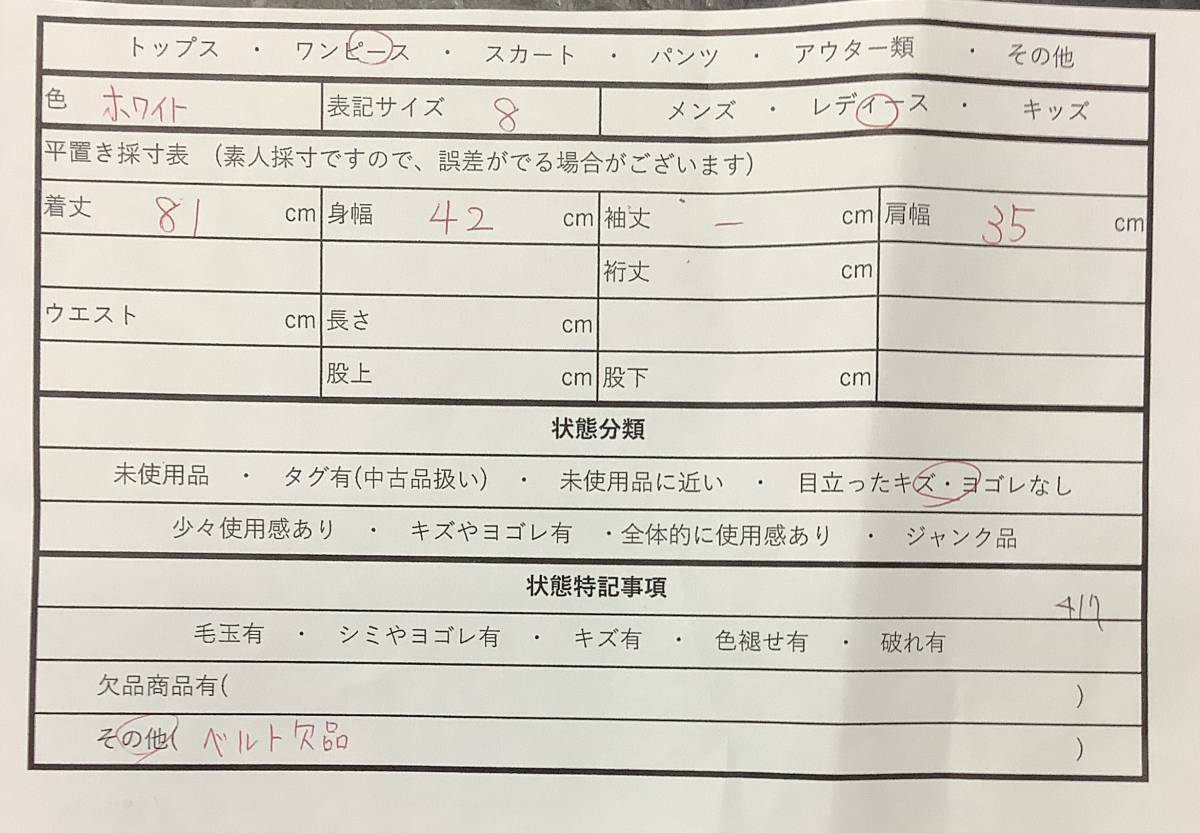 トップス ・ ワンピース ・ スカート ・ パンツ ・ アウター類 ・ その他
色 ホワイト 表記サイズ 8 メンズ ・ レディース ・ キッズ
平置き採寸表 (素人採寸ですので、誤差がでる場合がございます)
着丈 81 cm 身幅 42 cm 袖丈 ー cm 肩幅 35 cm
裄丈 cm
ウエスト cm 長さ cm
股上 cm 股下 cm
状態分類
未使用品 ・ タグ有(中古品扱い) ・ 未使用品に近い ・ 目立ったキズ・ヨゴレなし
少々使用感あり ・ キズやヨゴレ有 ・全体的に使用感あり ・ ジャンク品
状態特記事項
417
毛玉有 ・ シミやヨゴレ有 ・ キズ有 ・ 色褪せ有 ・ 破れ有
欠品商品有( )
その他( ベルト欠品 )